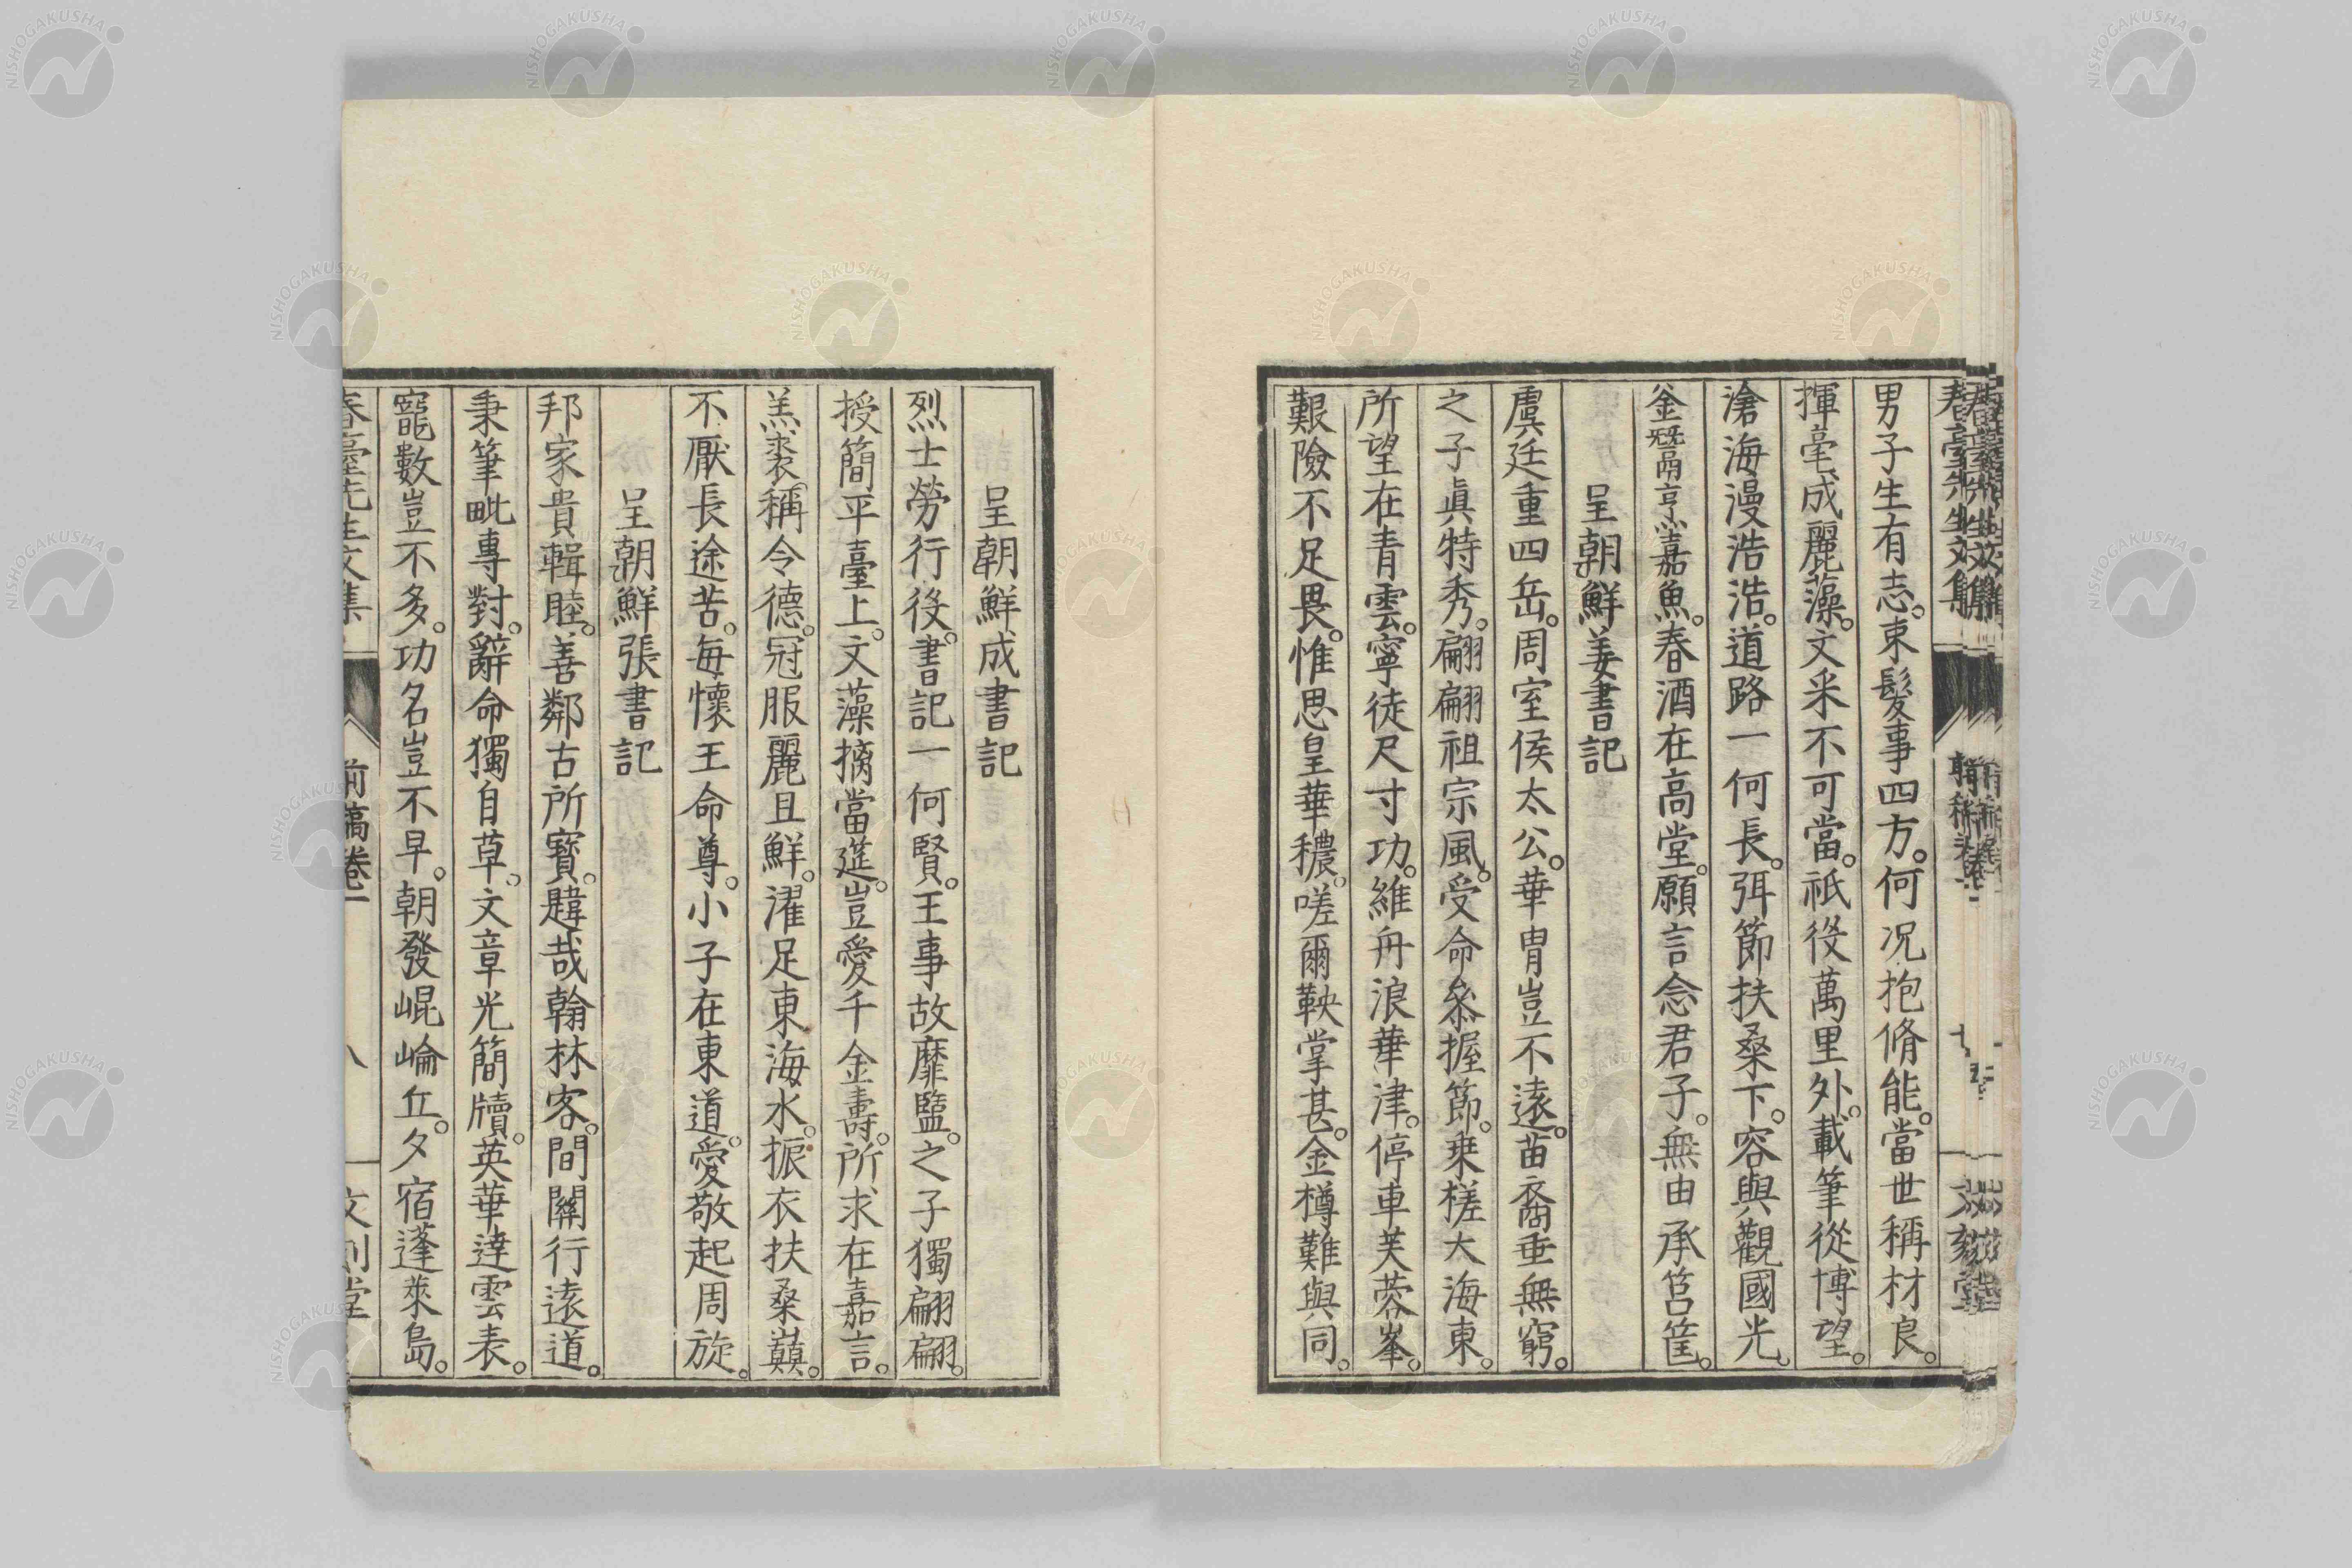 男子生有志。束髮事四方。何况抱脩能。當世稱材良。
揮毫成麗藻。文采不可當。祇役萬里外。載筆從博望。
滄海漫浩浩。道路一何長。弭節扶桑下。容與觀國光。
釜鬵烹嘉魚。春酒在高堂。願言念君子。無由承筥筐。
呈朝鮮姜書記
虞廷重四岳。周室侯太公。華冑豈不遠。苗裔垂無窮。
之子眞特秀。翩翩祖宗風。受命叅握節。乗槎大海東。
所望在青雲。寧徒尺寸功。維舟浪華津。停車芙蓉峯。
艱險不足畏。惟思皇華穠。嗟爾鞅掌甚。金樽難與同。
呈朝鮮成書記
烈士勞行役。書記一何賢。王事故靡盬。之子獨翩翩。
授簡平臺上。文藻摛當筵。豈愛千金壽。所求在嘉言。
羔裘稱令德。冠服麗且鮮。濯足東海水。振衣扶桑巔。
不厭長途苦。毎懷王命尊。小子在東道。愛敬起周旋。
呈朝鮮張書記
邦家貴輯睦。善鄰古所寳。韙哉翰林客。間關行遠道。
秉筆毗專對。辭命獨自草。文章光簡牘。英華達雲表。
寵數豈不多。功名豈不早。朝發崐崘丘。夕宿蓬萊島。
春臺先生文集 前稿卷一 八 文刻堂
NISHOGAKUSHA